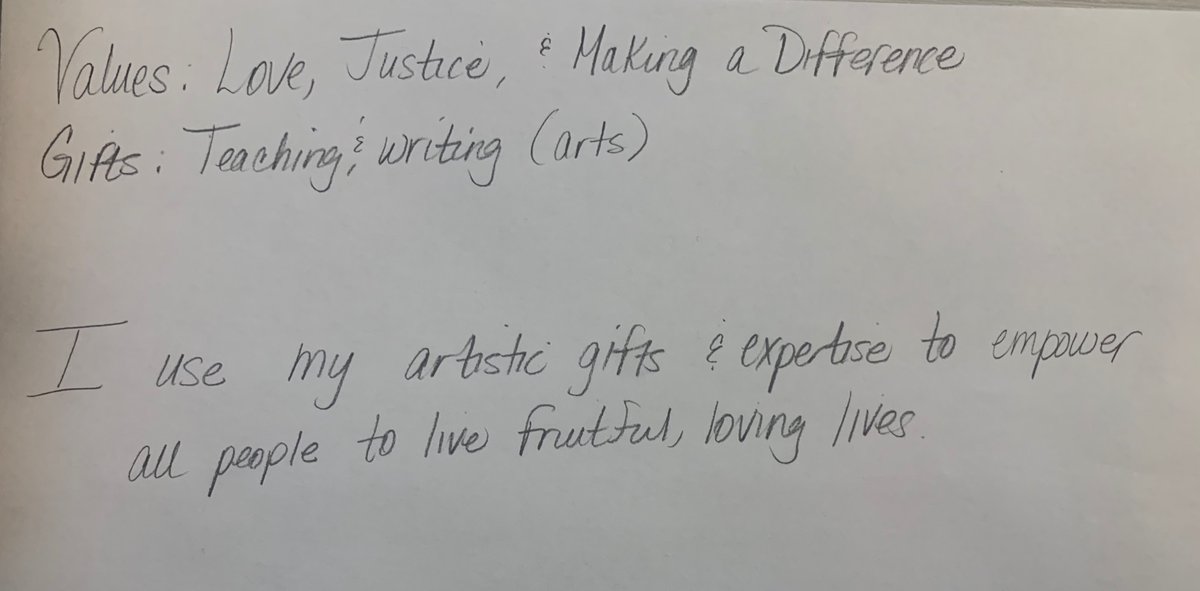 Values: Love, Justice, & Making a Difference
Gifts: Teaching, & writing (arts)
I use my artistic gifts & expertise to empower
all people to live fruitful, loving lives.